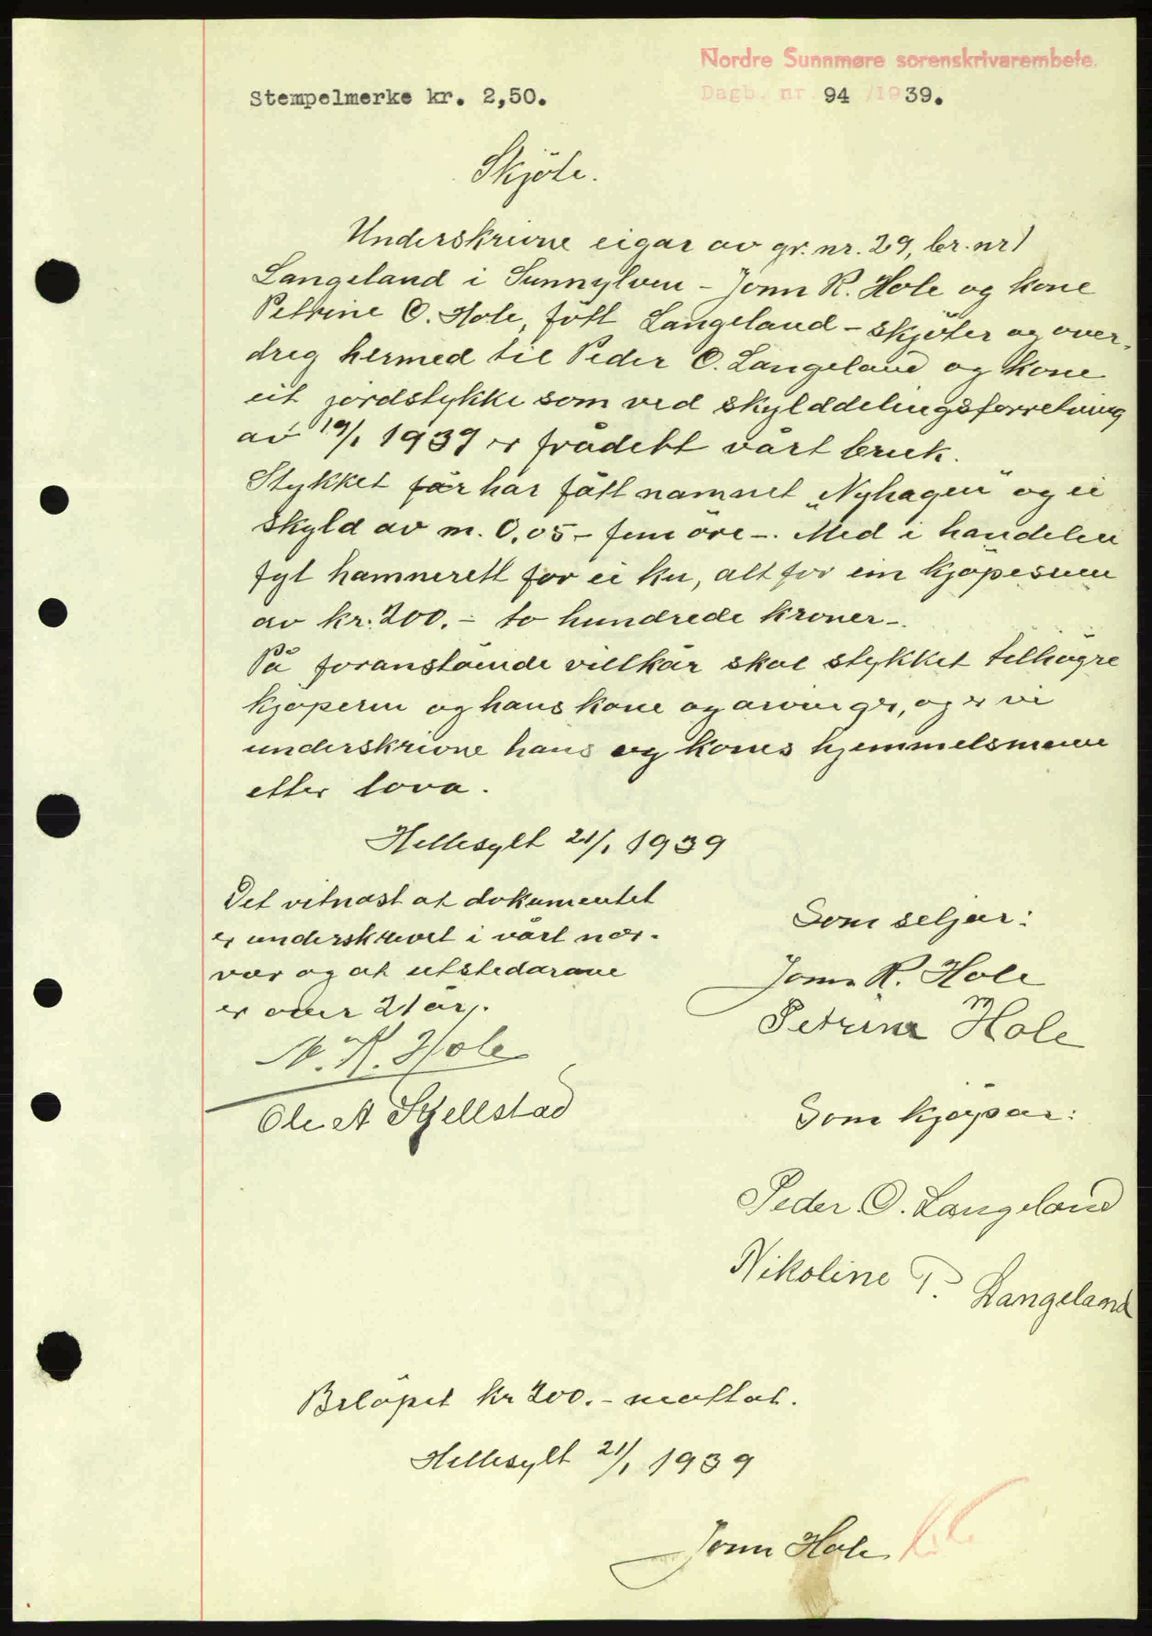 Nordre Sunnmøre sorenskrivarembete.
Stempelmerke kr. 2,50.
Dagb. nr 94 /1939.
Skjöte.
Underskrivne eigar av gr. nr. 29, br. nr 1
Langeland i Sunnylven - Jonn R. Hole og kone
Petrine O. Hole, fött Langeland - skjöter og over-
dreg hermed til Peder O. Langeland og kone
eit jordstykke som ved skylddelingsforretning
av 19/1 1939 er frådelt vårt bruk.
Stykket får har fått namnet "Nyhagen" og ei
skyld av m. 0,05 - fem öre -. Med i handelen
fyl hamnerett for ei ku, alt for ein kjöpesum
av kr. 200.- to hundrede kroner -.
På foranståande villkår skal stykket tilhöyre
kjöperen og hans kone og arvinger, og er vi
underskrivne hans og kones hjemmelsmenn
etter lova.
Hellesylt 21/1 1939
Det vitnast at dokumentet
er underskrevet i vårt nær-
vær og at utstedarane
er over 21 år.
N. K. Hole
Ole A Kjellstad
Som seljar:
Jonn R. Hole
Petrine Hole
Som kjöpar:
Peder O. Langeland
Nikoline P. Langeland
Belöpet kr 200.- mottat.
Hellesylt 21/1 1939
Jonn Hole